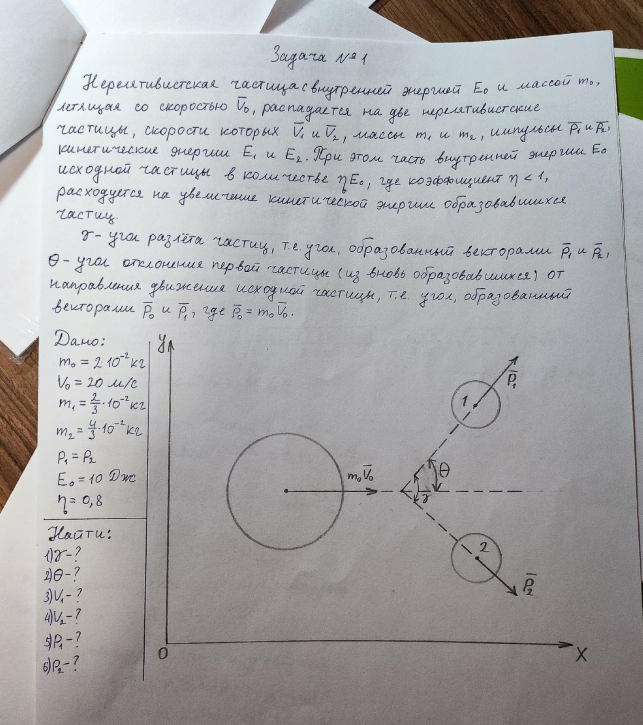 Задача № 1
Нерелятивистская частица с внутренней энергией E₀ и массой m₀,
летящая со скоростью V̅₀, распадается на две нерелятивистские
частицы, скорости которых V̅₁ и V̅₂, массы m₁ и m₂, импульсы p̅₁ и p̅₂,
кинетические энергии E₁ и E₂. При этом часть внутренней энергии E₀
исходной частицы в количестве ηE₀, где коэффициент η < 1,
расходуется на увеличение кинетической энергии образовавшихся
частиц.
γ- угол разлёта частиц, т.е. угол, образованный векторами p̅₁ и p̅₂,
θ- угол отклонения первой частицы (из вновь образовавшихся) от
направления движения исходной частицы, т.е. угол, образованный
векторами p̅₀ и p̅₁, где p̅₀ = m₀V̅₀.
Дано:
m₀ = 2·10⁻² кг
V₀ = 20 м/с
m₁ = 2/3·10⁻² кг
m₂ = 4/3·10⁻² кг
p₁ = p₂
E₀ = 10 Дж
η = 0,8
Найти:
1) γ-?
2) θ-?
3) V₁-?
4) V₂-?
5) p₁-?
6) p₂-?
y
1
p̅₁
m₀V̅₀
θ
γ
2
p̅₂
0
x